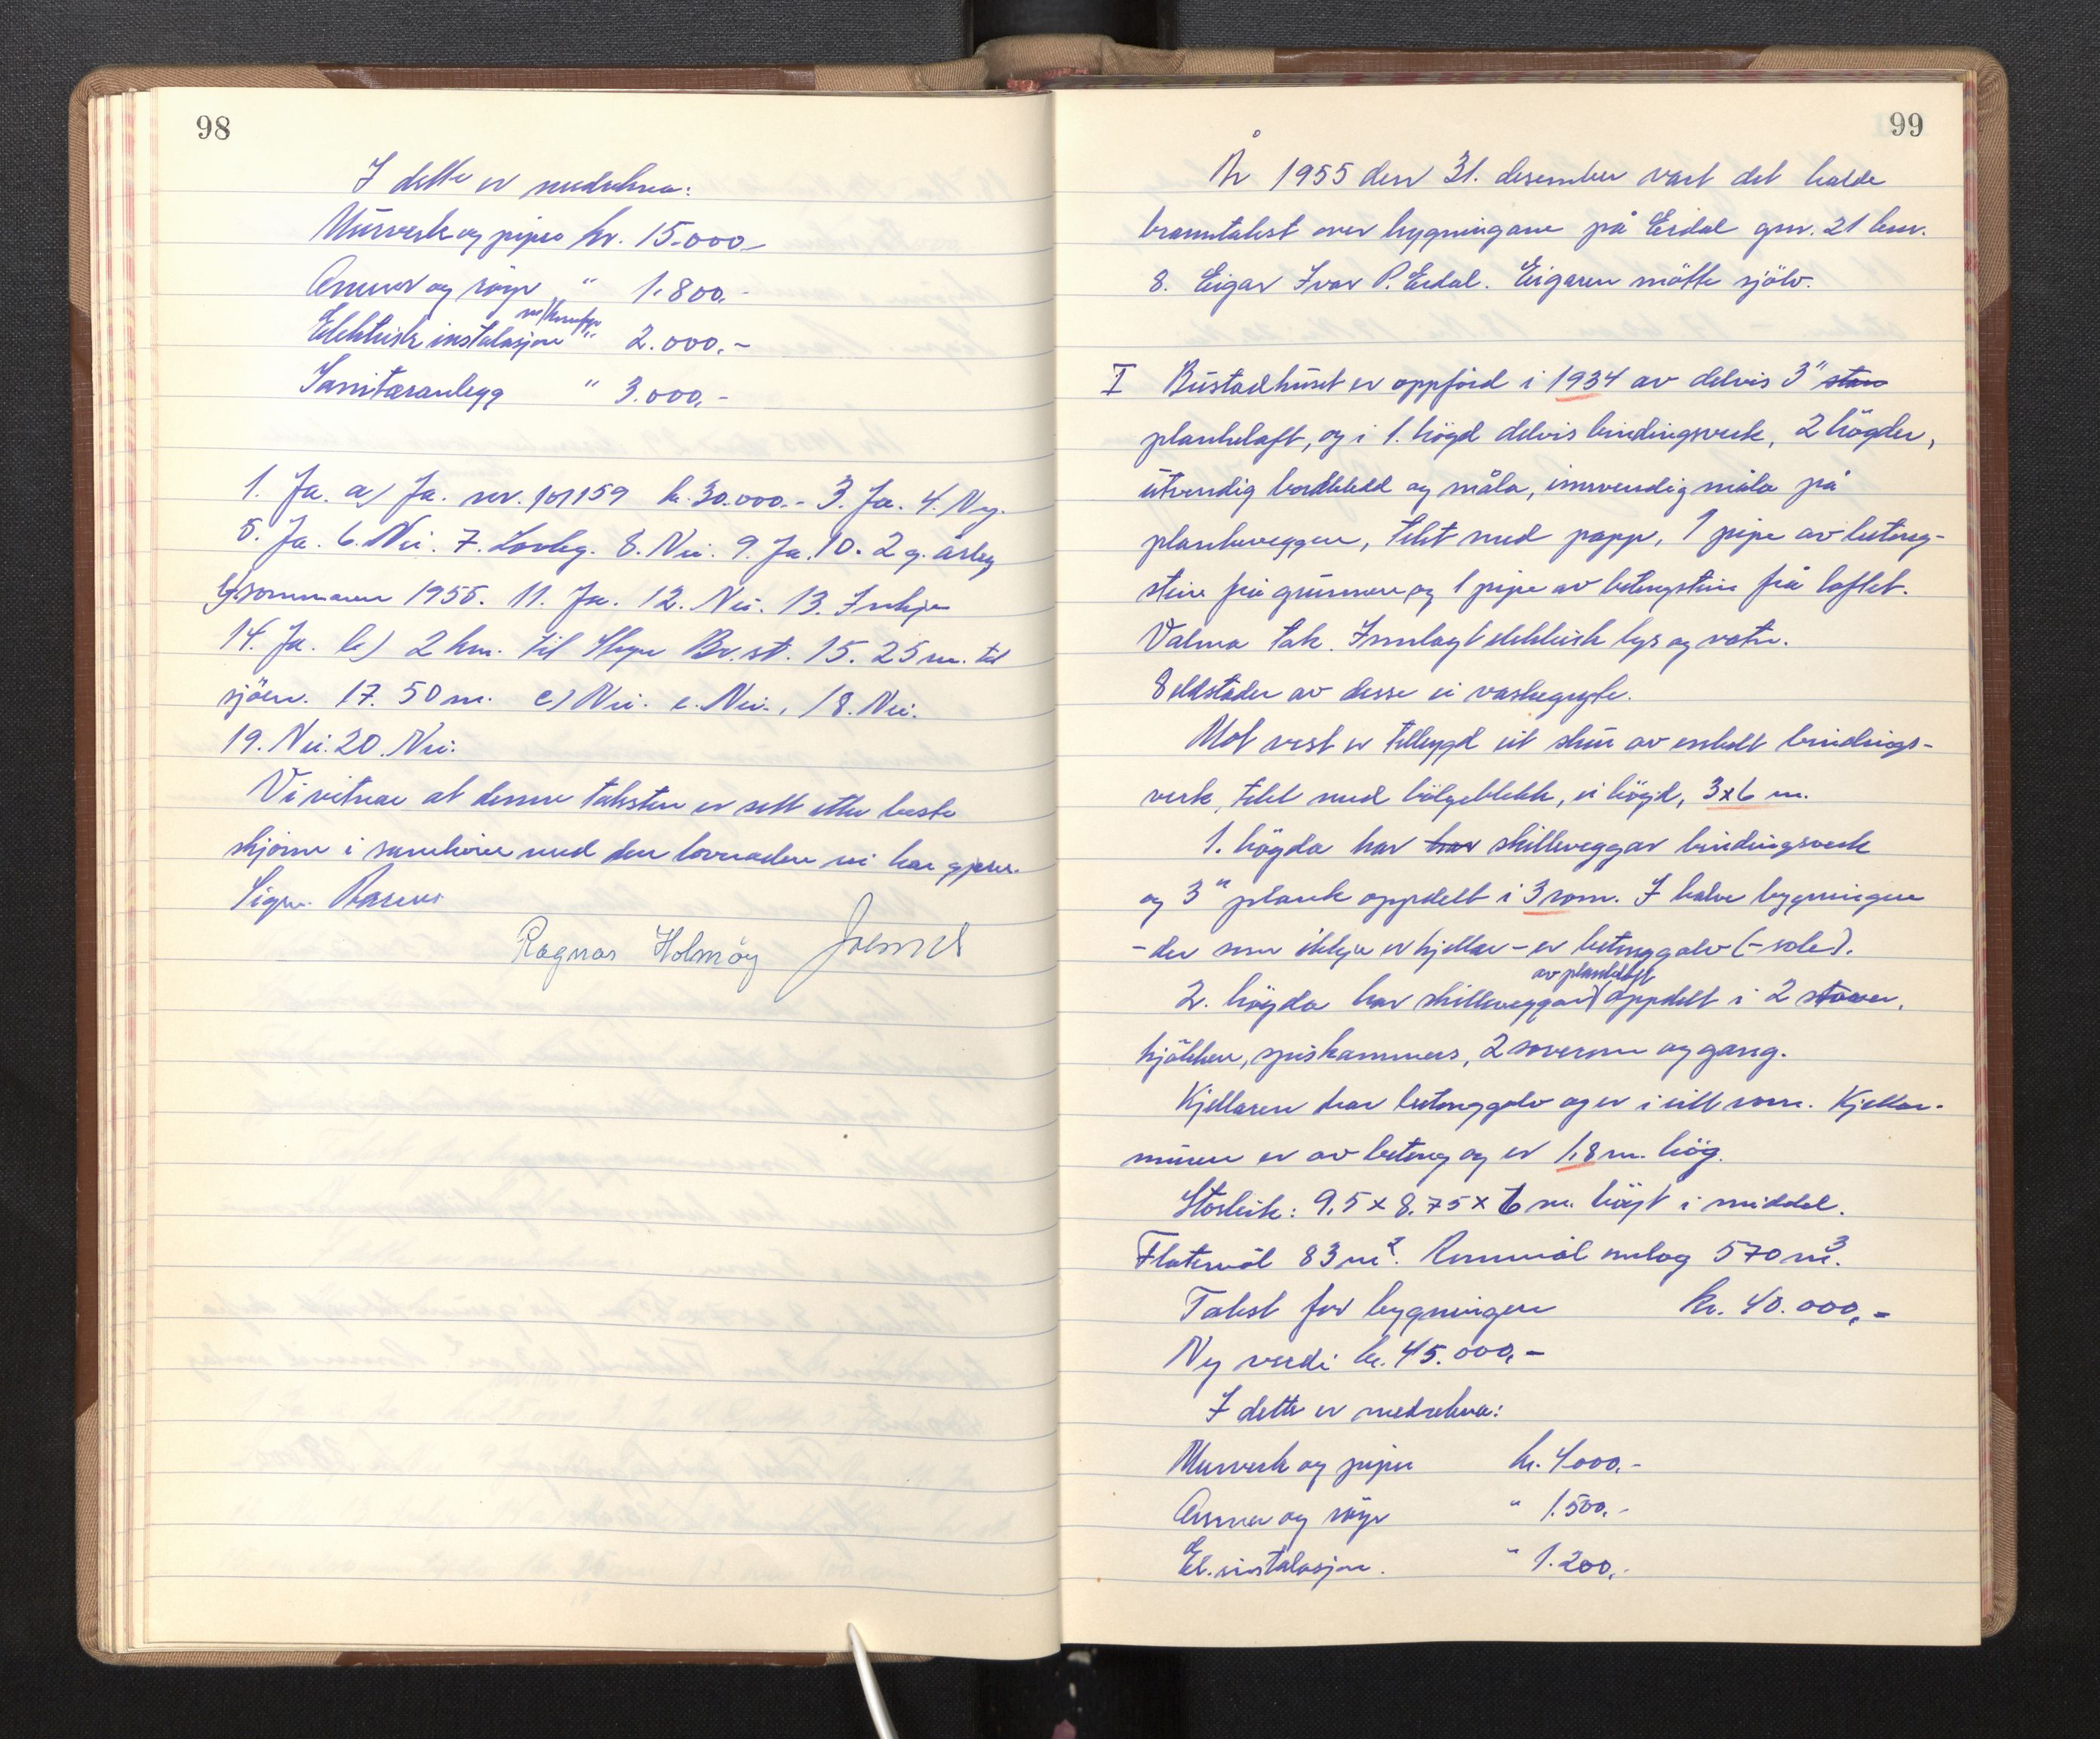 98
I dette er medrekna:
Murverk og piper kr. 15.000,-
Omnar og röyr " 1.800.-
m/kumfyr
Elektrisk instalasjon " 2.000.-
Sanitæranlegg " 3.000,-
1. Ja. a) Ja. nr. 101159 kr. 30.000.- 3. Ja. 4. Ny.
5. Ja. 6. Nei. 7. Lovleg. 8. Nei. 9. Ja. 10. 2 g. årleg
sommaren 1955. 11. Ja. 12. Nei. 13. Inkje
14. Ja. b) 2 km. til Br.st. 15. 25 m. til
sjöen. 17. 50 m. c) Nei. e. Nei., 18. Nei.
19. Nei. 20. Nei.
Vi vitnar at denne taksten er sett etter beste
skjönn i samhöve med den lovnaden vi har gjeve.
Sign.
Ragnar Holmöy
99
År 1955 den 31. desember vart det halde
branntakst over bygningane på Eidal gnr. 21 bnr.
8. Eigar Ivar P. Eidal. Eigaren mötte sjölv.
I Bustadhuset er oppförd i 1934 av delvis 3" stav
plankelaft, og i 1. högd delvis bindingsverk, 2 högder,
utvendig bordkledd og måla, innvendig måla på
plankeveggen, tekt med papp, 1 pipe av betong-
stein frå grunnen og 1 pipe av betongstein frå loftet.
Valma tak. Innlagt elektrisk lys og vatn.
8 eldstader av desse ei vaskegryte.
Mot vest er tilbygd eit skur av enkelt bindings-
verk, tekt med bölgeblekk, ei högd, 3x6 m.
1. högda har har skilleveggar bindingsverk
og 3" plank oppdelt i 3 rom. I halve bygningen
- der som ikkje er kjellar - er betonggolv (- sole).
av plankelaft
2. högda har skilleveggar oppdelt i 2 stover,
kjökken, spiskammers, 2 soverom og gang.
Kjellaren har betonggolv og er i eitt rom. Kjellar-
muren er av betong og er 1,8 m. hög.
Storleik: 9,5 x 8,75 x 6 m. högt i middel.
Flatemål 83 m². Rommål omlag 570 m³.
Takst for bygningen kr. 40.000,-
Ny verdi kr. 45.000,-
I dette er medrekna:
Murverk og piper kr. 4000,-
Omnar og röyr " 1.500,-
El. instalasjon. " 1.200,-